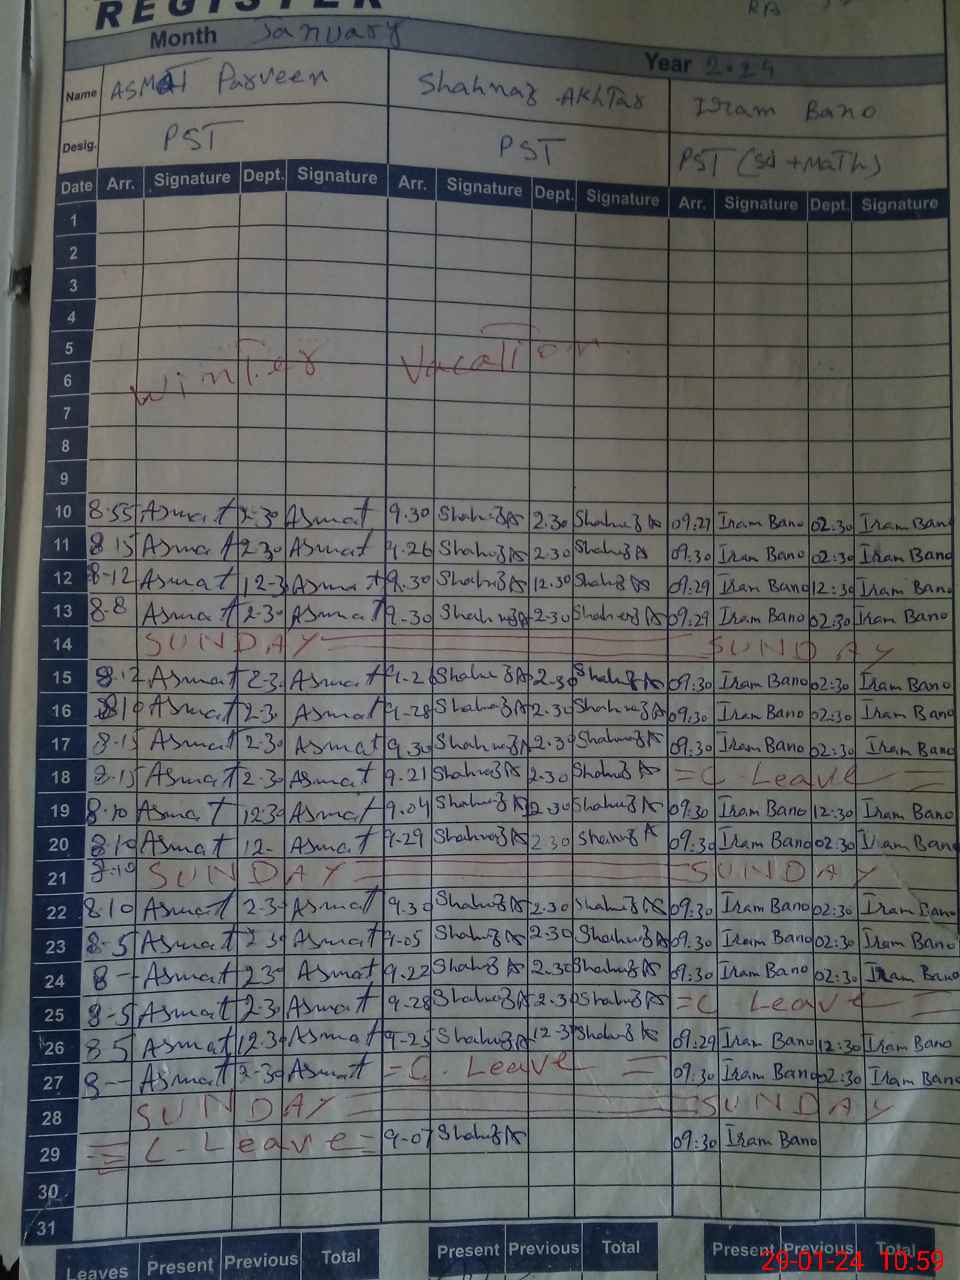 REGISTER
Month January
Year 2024
Name ASMAT Parveen Shahnaz AKhTar Iram Bano
Desig. PST PST PST (Sci + MaTh)
Date Arr. Signature Dept. Signature Arr. Signature Dept. Signature Arr. Signature Dept. Signature
1
2
3
4
5
6 WinTer VacaTion
7
8
9
10 8.55 Asmat 2-30 Asmat 9.30 2.30 09:27 Iram Bano 02:30 Iram Bano
11 8 15 Asmat 2-30 Asmat 9.26 2-30 09:30 Iram Bano 02:30 Iram Bano
12 8-12 Asmat 12-3 Asmat 9.30 12.30 09:29 Iram Bano 12:30 Iram Bano
13 8.8 Asmat 2-30 Asmat 9-30 2-30 09:29 Iram Bano 02:30 Iram Bano
14 SUNDAY SUNDAY
15 8.12 Asmat 2-3 Asmat 2.30 09:30 Iram Bano 02:30 Iram Bano
16 Asmat 2-3 Asmat 9-28 2.30 09:30 Iram Bano 02:30 Iram Bano
17 8-15 Asmat 2-30 Asmat 9.30 2-30 09:30 Iram Bano 02:30 Iram Bano
18 8-15 Asmat 2-30 Asmat 9.21 2-30 = C Leave =
19 8.10 Asmat 12-30 Asmat 9.04 09:30 Iram Bano 12:30 Iram Bano
20 8.10 Asmat 12- Asmat 9-29 2 30 09:30 Iram Bano 02:30 Iram Bano
21 SUNDAY SUNDAY
22 8.10 Asmat 2-3 Asmat 9.30 2-30 09:30 Iram Bano 02:30 Iram Bano
23 8-5 Asmat 2 30 Asmat 9-05 2-30 09:30 Iram Bano 02:30 Iram Bano
24 8- Asmat 2 30 Asmat 9.22 2.30 09:30 Iram Bano 02:30 Iram Bano
25 8-5 Asmat 2-3 Asmat 9-28 2-30 = C Leave =
26 8 5 Asmat 12.30 Asmat 9-25 12-3 09:29 Iram Bano 12:30 Iram Bano
27 8-- Asmat 2-30 Asmat = C. Leave = 09:30 Iram Bano 02:30 Iram Bano
28 SUNDAY SUNDAY
29 = C - Leave = 9-07 09:30 Iram Bano
30
31
Leaves Present Previous Total Present Previous Total Present Previous Total
29-01-24 10:59